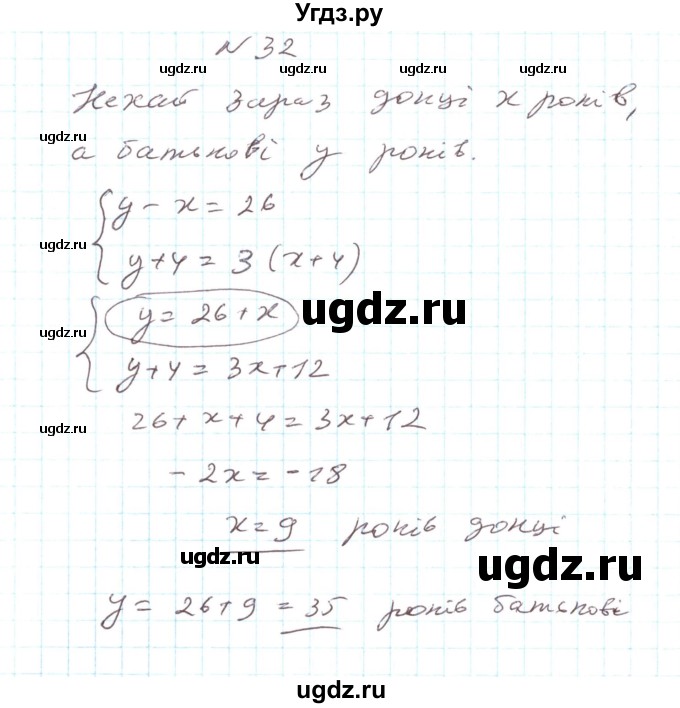 Угдз.ру
N 32
ugdz.ru ugdz.ru ugdz.ru
Нехай зараз донці x років,
ugdz.ru ugdz.ru
а батькові y років.
y - x = 26
ugdz.ru
y + 4 = 3 (x + 4)
y = 26 + x
ugdz.ru ugdz.ru
y + 4 = 3x + 12
26 + x + 4 = 3x + 12
ugdz.ru
- 2x = -18
x = 9 років донці
ugdz.ru ugdz.ru
y = 26 + 9 = 35 років батькові
ugdz.ru